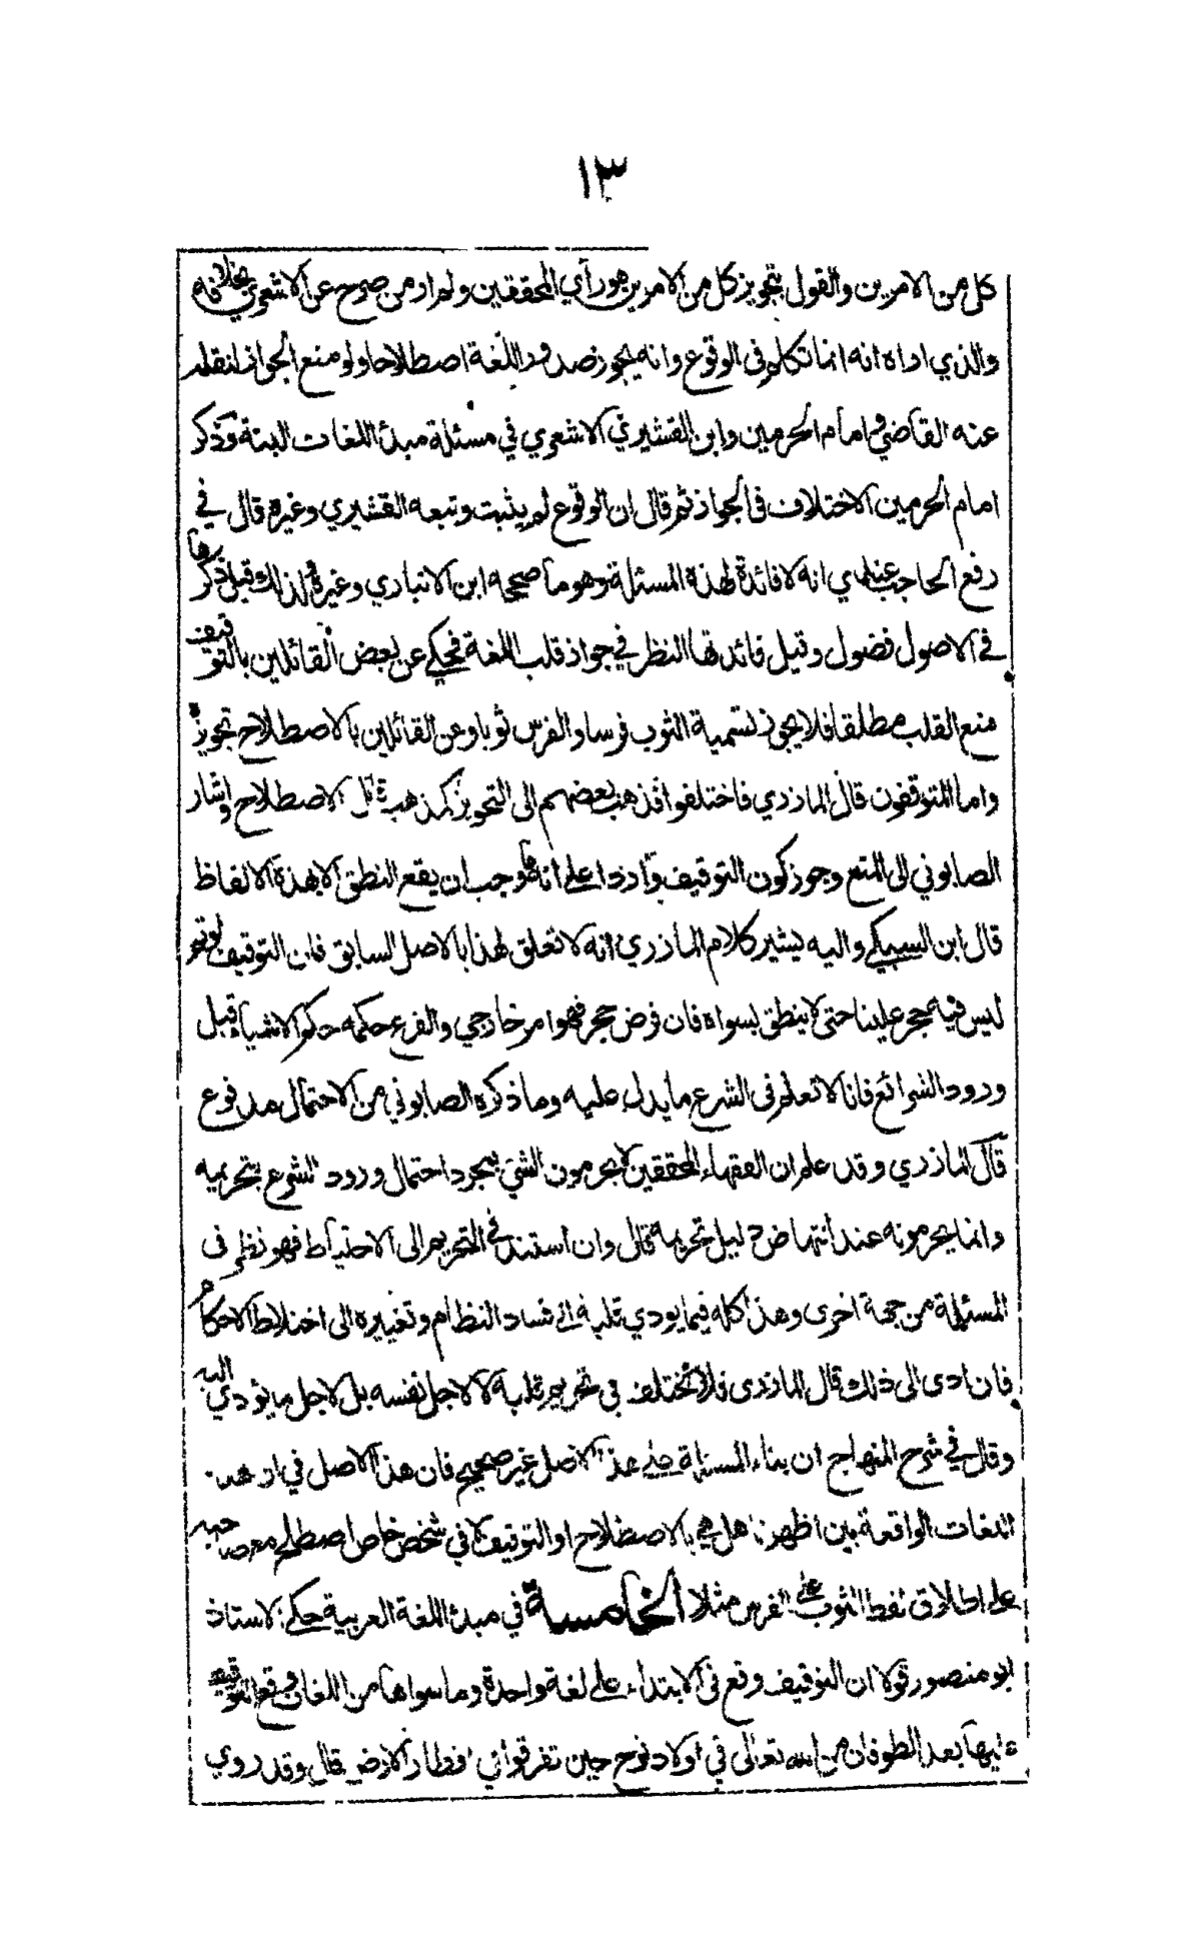 ١٣
كل من الامرين والقول بتجويز كل من الامرين هو رأي المحققين ولم ار من صرح عن الاشعري بخلافه
والذي اراه انه انما تكلم في الوقوع وانه يجوز صدور اللغة اصطلاحا ولو منع الجواز لنقله
عنه القاضي وامام الحرمين وابن القشيري الاشعري في مسئلة مبدأ اللغات البتة وذكر
امام الحرمين الاختلاف في الجواز ثم قال ان الوقوع لم يثبت وتبعه القشيري وغيره قال في
رفع الحاجب عندي انه لا فائدة لهذه المسئلة وهو ما صححه ابن الانباري وغيره ولذلك قيل ذكرها
في الاصول فضول وقيل فائدتها النظر في جواز قلب اللغة فحكي عن بعض القائلين بالتوقيف
منع القلب مطلقا فلا يجوز تسمية الثوب فرسا والفرس ثوبا وعن القائلين بالاصطلاح تجويزه
واما المتوقفون قال المازري فاختلفوا فذهب بعضهم الى التجويز كمذهب قائل الاصطلاح واشار
الصابوني الى المنع وجوز كون التوقيف واردا على انه وجب ان يقع النطق الا بهذه الالفاظ
قال ابن السبكي واليه يشير كلام المازري انه لا تعلق لهذا بالاصل السابق فان التوقيف لو تم
ليس فيه حجر علينا حتى لا ينطق بسواه فان فرض حجر فهو امر خارجي والفرع حكمه حكم الاشياء قبل
ورود الشرائع فانا لا نعلم في الشرع ما يدل عليه وما ذكره الصابوني من الاحتمال مدفوع
قال المازري وقد علم ان الفقهاء المحققين لا يحرمون الشئ بمجرد احتمال ورود الشرع بتحريمه
وانما يحرمونه عند انتهاض دليل تحريمه قال وان استند في التحريم الى الاحتياط فهو نظر في
المسئلة من جهة اخرى وهذا كله فيما يودي قلبه الى فساد النظام وتغييره الى اختلاط الاحكام
فان ادى الى ذلك قال المازري فلا نختلف في تحريم قلبه لا لاجل نفسه بل لاجل ما يؤدي اليه
وقال في شرح المنهاج ان بناء المسئلة على هذا الاصل غير صحيح فان هذا الاصل في ان هذه
اللغات الواقعة بين اظهرنا هل هي بالاصطلاح او التوقيف لا في شخص خاص اصطلح مع صاحبه
على اطلاق لفظ الثوب على الفرس مثلا الخامسة في مبدأ اللغة العربية حكى الاستاذ
ابو منصور قولا ان التوقيف وقع في الابتداء على لغة واحدة وما سواها من اللغات وقع التوقيف
عليها بعد الطوفان من الله تعالى في اولاد نوح حين تفرقوا في اقطار الارض قال وقد روي